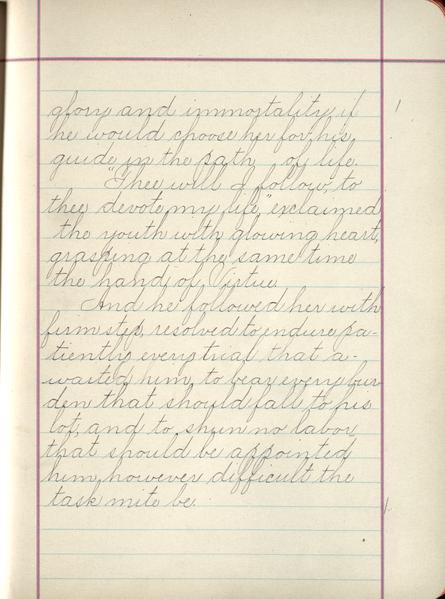 glory and immortality if
he would choose her for his
guide in the path of life.
"Thee will I follow, to
thee devote my life," exclaimed
the youth with glowing heart,
grasping at the same time
the hand of Virtue.
And he followed her with
firm step, resolved to indure pa-
tiently every trial that a-
waited him, to bear every bur
den that should fall to his
lot, and to shun no labor
that should be appointed
him, however difficult the
task mite be.